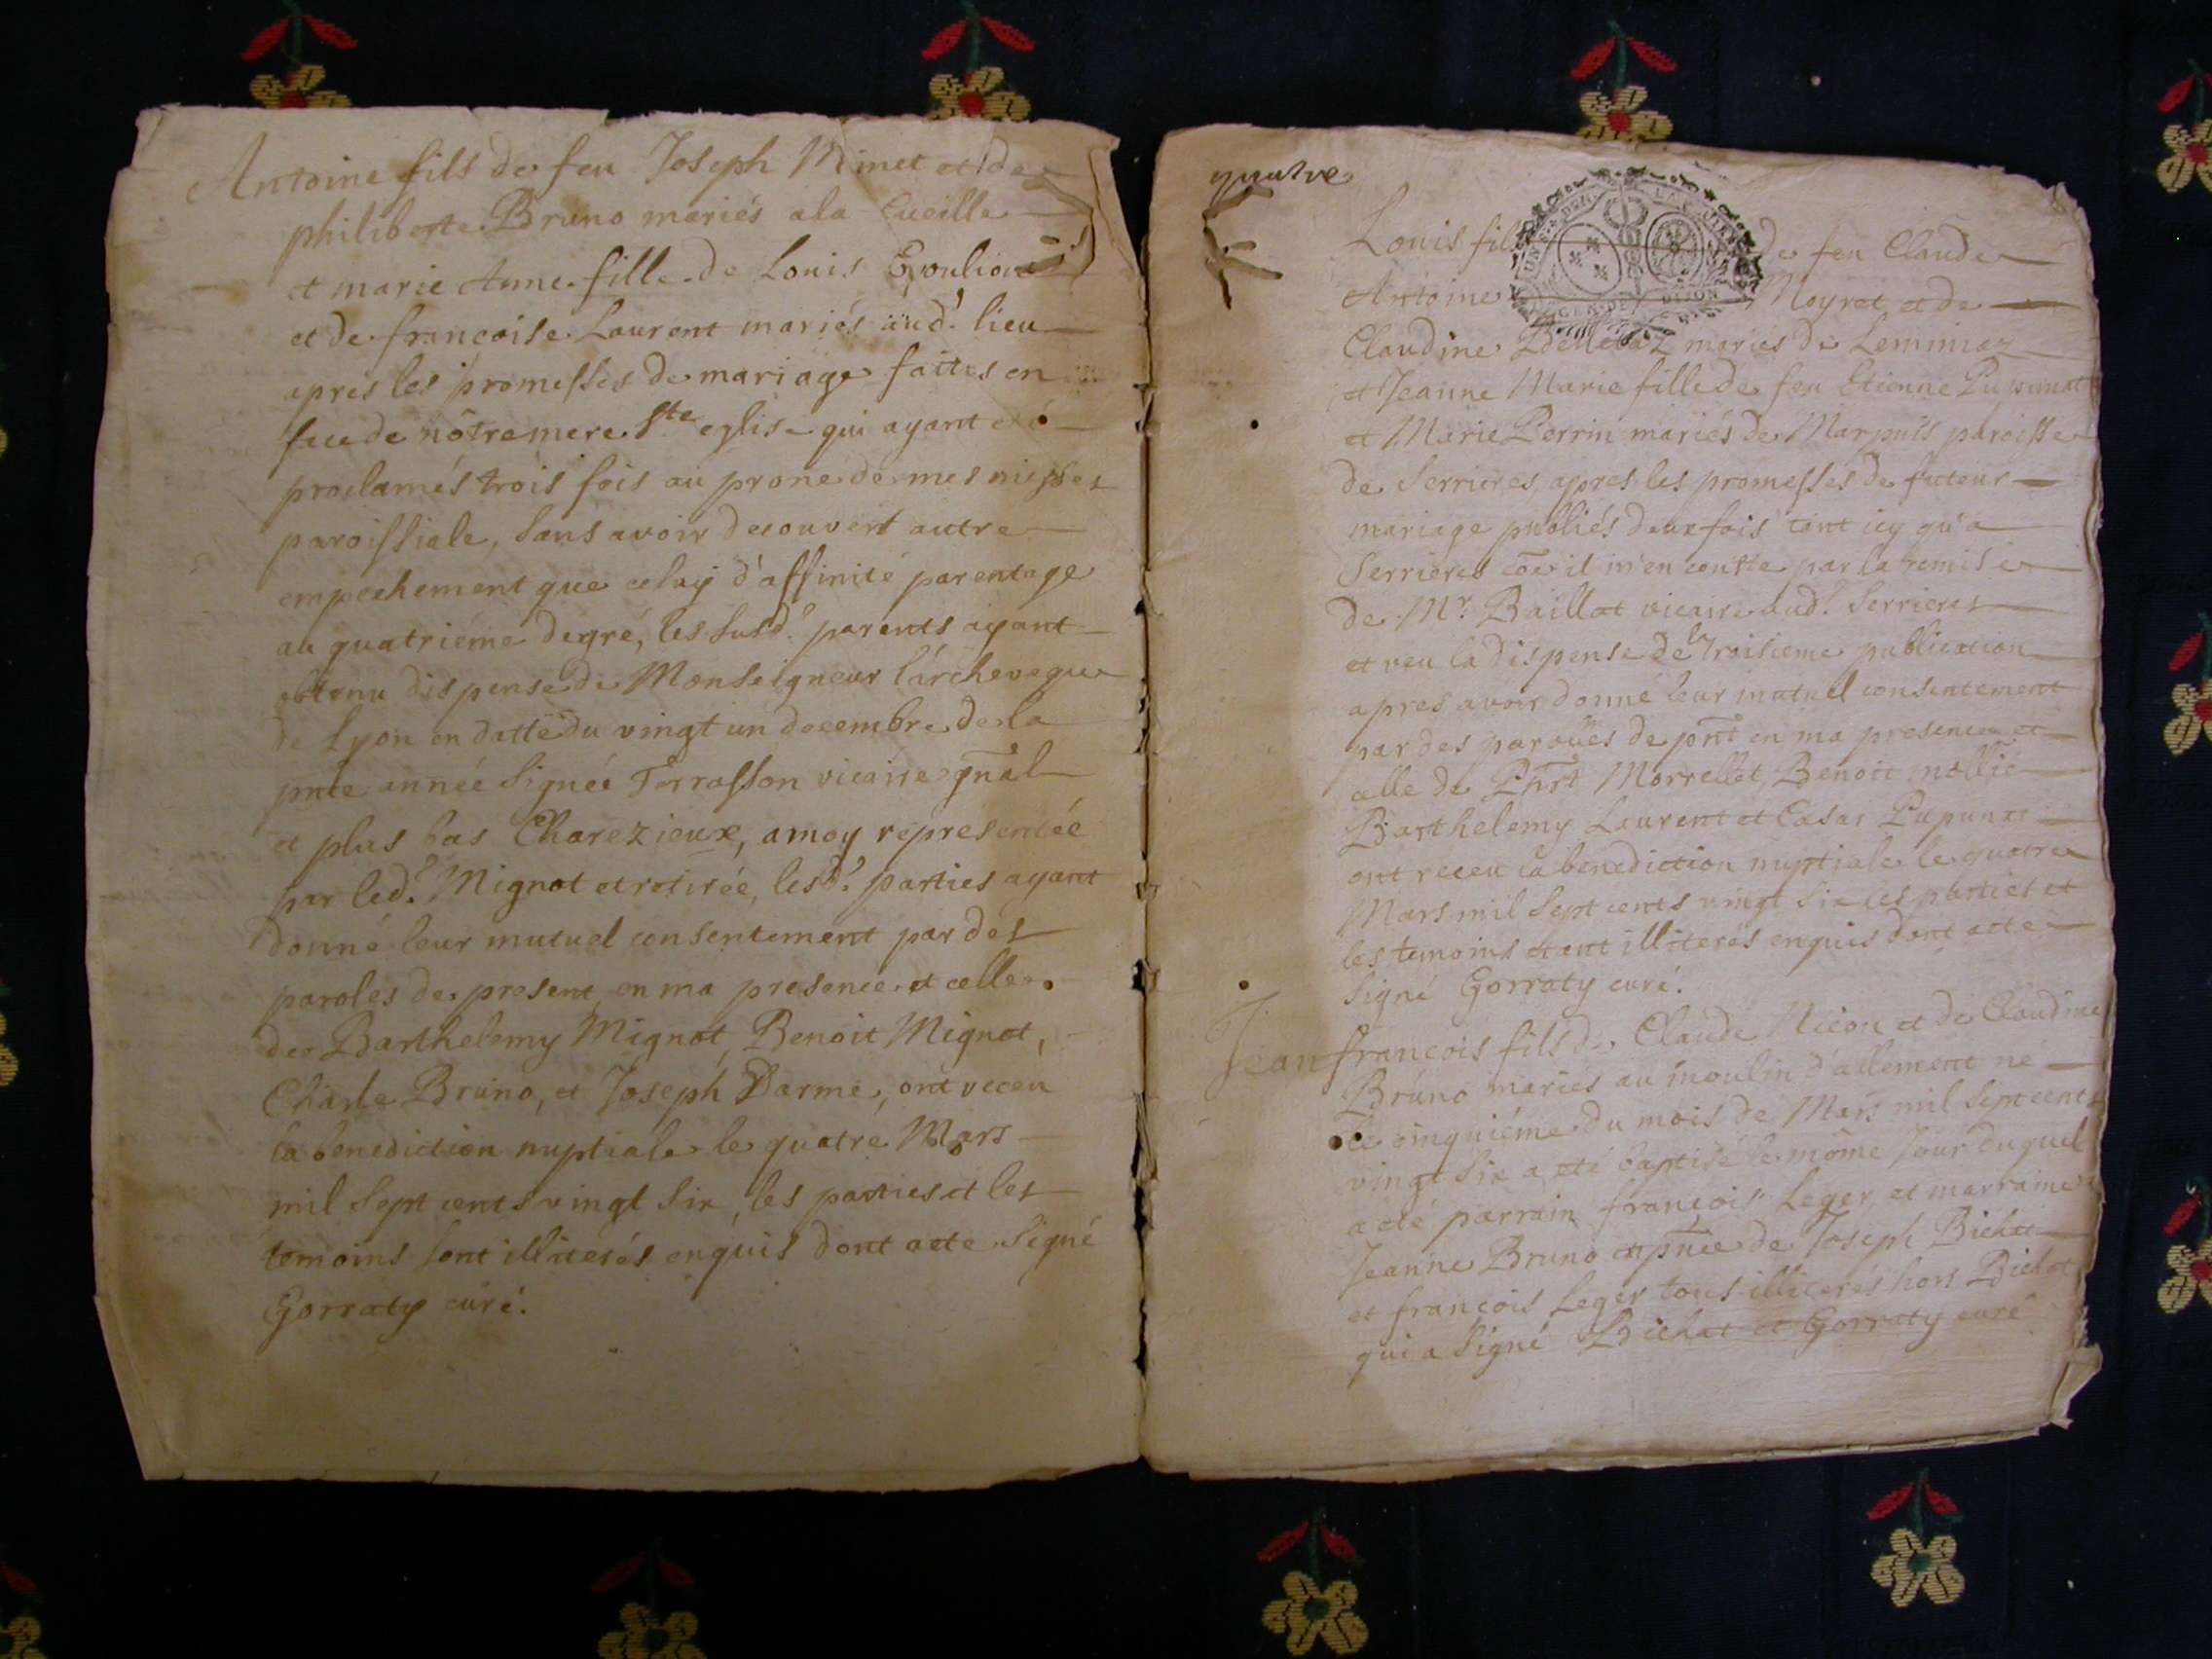 Antoine fils de feu Joseph Minet et de
philiberte Bruno mariés a la Cueille
et marie Anne fille de Louis
et de francoise Laurent mariés aud.t lieu
apres les promesses de mariage faittes en
face de nôtre mere Ste eglise qui ayant eté
proclamés trois fois au prone de mes messes
paroissiale, sans avoir decouvert autre
empeschement que celuy d'affinité parentage
au quatriéme degré, les susd.s parents ayant
obtenu dispense de Monseigneur l'archeveque
de Lyon en datte du vingt un decembre de la
pnte année signée Terrasson vicaire gnāl
et plus bas Charezieux, a moy representée
par led.t Mignot et retirée, lesd.s parties ayant
donné leur mutuel consentement par des
paroles de present en ma presence et celle
de Barthelemy Mignot, Benoit Mignot,
Charle Bruno, et Joseph Darme, ont receu
la benediction nuptiale le quatre Mars
mil sept cents vingt six, les parties et les
temoins sont illiterés enquis dont acte signé
Gorraty curé.
quatre
Louis fils de feu Claude
Antoine Moyret et de
Claudine mariés de Leminiaz
et Jeanne Marie fille de feu Etienne Pupunat
et Marie Perrin mariés de Marpuis paroisse
de Serrieres, apres les promesses de futeur
mariage publiés deux fois tant icy qu'a
Serrieres cōe il m'en conste par la remise
de Mr. Baillat vicaire aud.t Serrieres
et veu la dispense de la troisieme publication
apres avoir donné leur mutuel consentement
par des paroües de pōnt en ma presence et
celle de Morrellet, Benoit
Barthelemy Laurent et Casar Pupunat
ont receu la benediction nuptiale le quatre
Mars mil sept cents vingt six les parties et
les temoins etant illiterés enquis dont acte
signé Gorraty curé.
Jean francois fils de Claude Nicon et de Claudine
Bruno mariés au moulin d'allement né
le cinquiéme du mois de Mars mil sept cents
vingt six a eté baptisé le même jour du quel
a eté parrain françois Leger et marraine
Jeanne Bruno en pnce de Joseph Bichat
et françois Leger tous illiterés hors Bichat
qui a signé Bichat et Gorraty curé